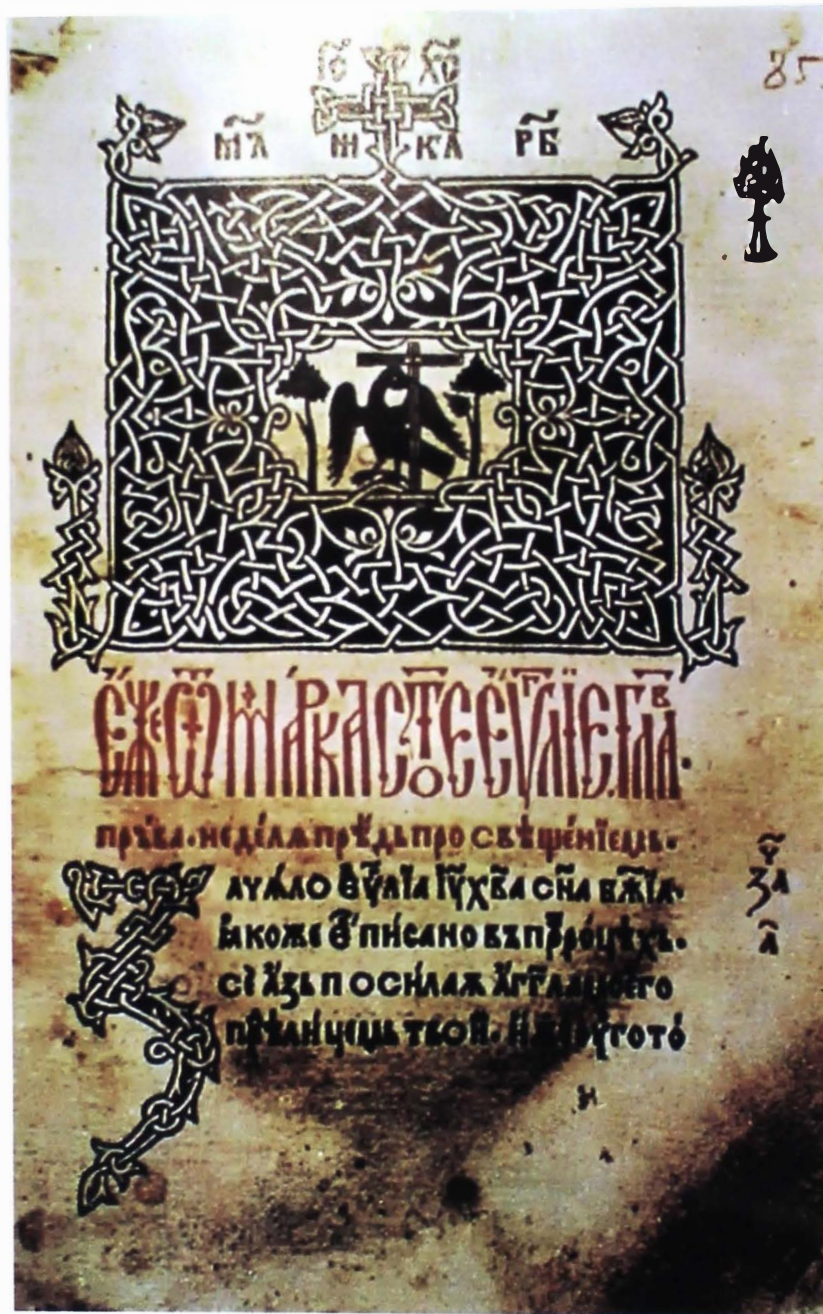 І҃С Х҃С
М҃Л Ж К҃А Р҃Б
85
Е҆́ЖЕ Ѿ МА́РКА СТ҃ОЕ Е҆Ѵ҃ЛЇЕ ГЛ҃А В҃·
прь́ва· недѣлꙗ прѣ́дь просвѣщенїемь·
ЗАЧѦ́ЛО єѵ҃лїа і҆ѵ҃ х҃ва сн҃а бж҃їа·
ꙗ҆коже є҆́писано въ пр҃ро́цѣхь·
сі҆ а҆́зь посилаѫ а҆́гг҃ла моего
прѣ́ лицемь твои҆мь·
З҃А
А҃